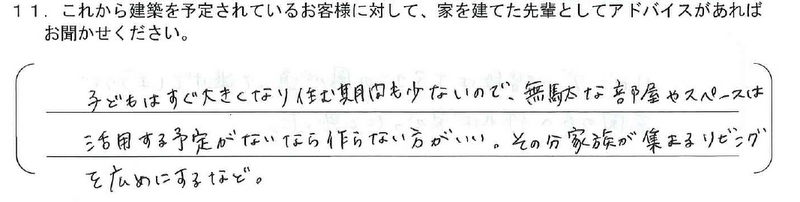 １１．これから建築を予定されているお客様に対して、家を建てた先輩としてアドバイスがあれば
お聞かせください。
子どもはすぐ大きくなり住む期間も少ないので、無駄な部屋やスペースは
活用する予定がないなら作らない方がいい。その分家族が集まるリビング
を広めにするなど。